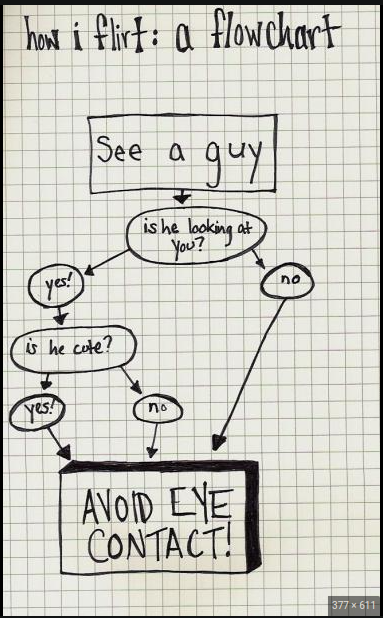 how i flirt: a flowchart
See a guy
is he looking at
you?
yes!
no
is he cute?
yes!
no
AVOID EYE
CONTACT!
377 × 611